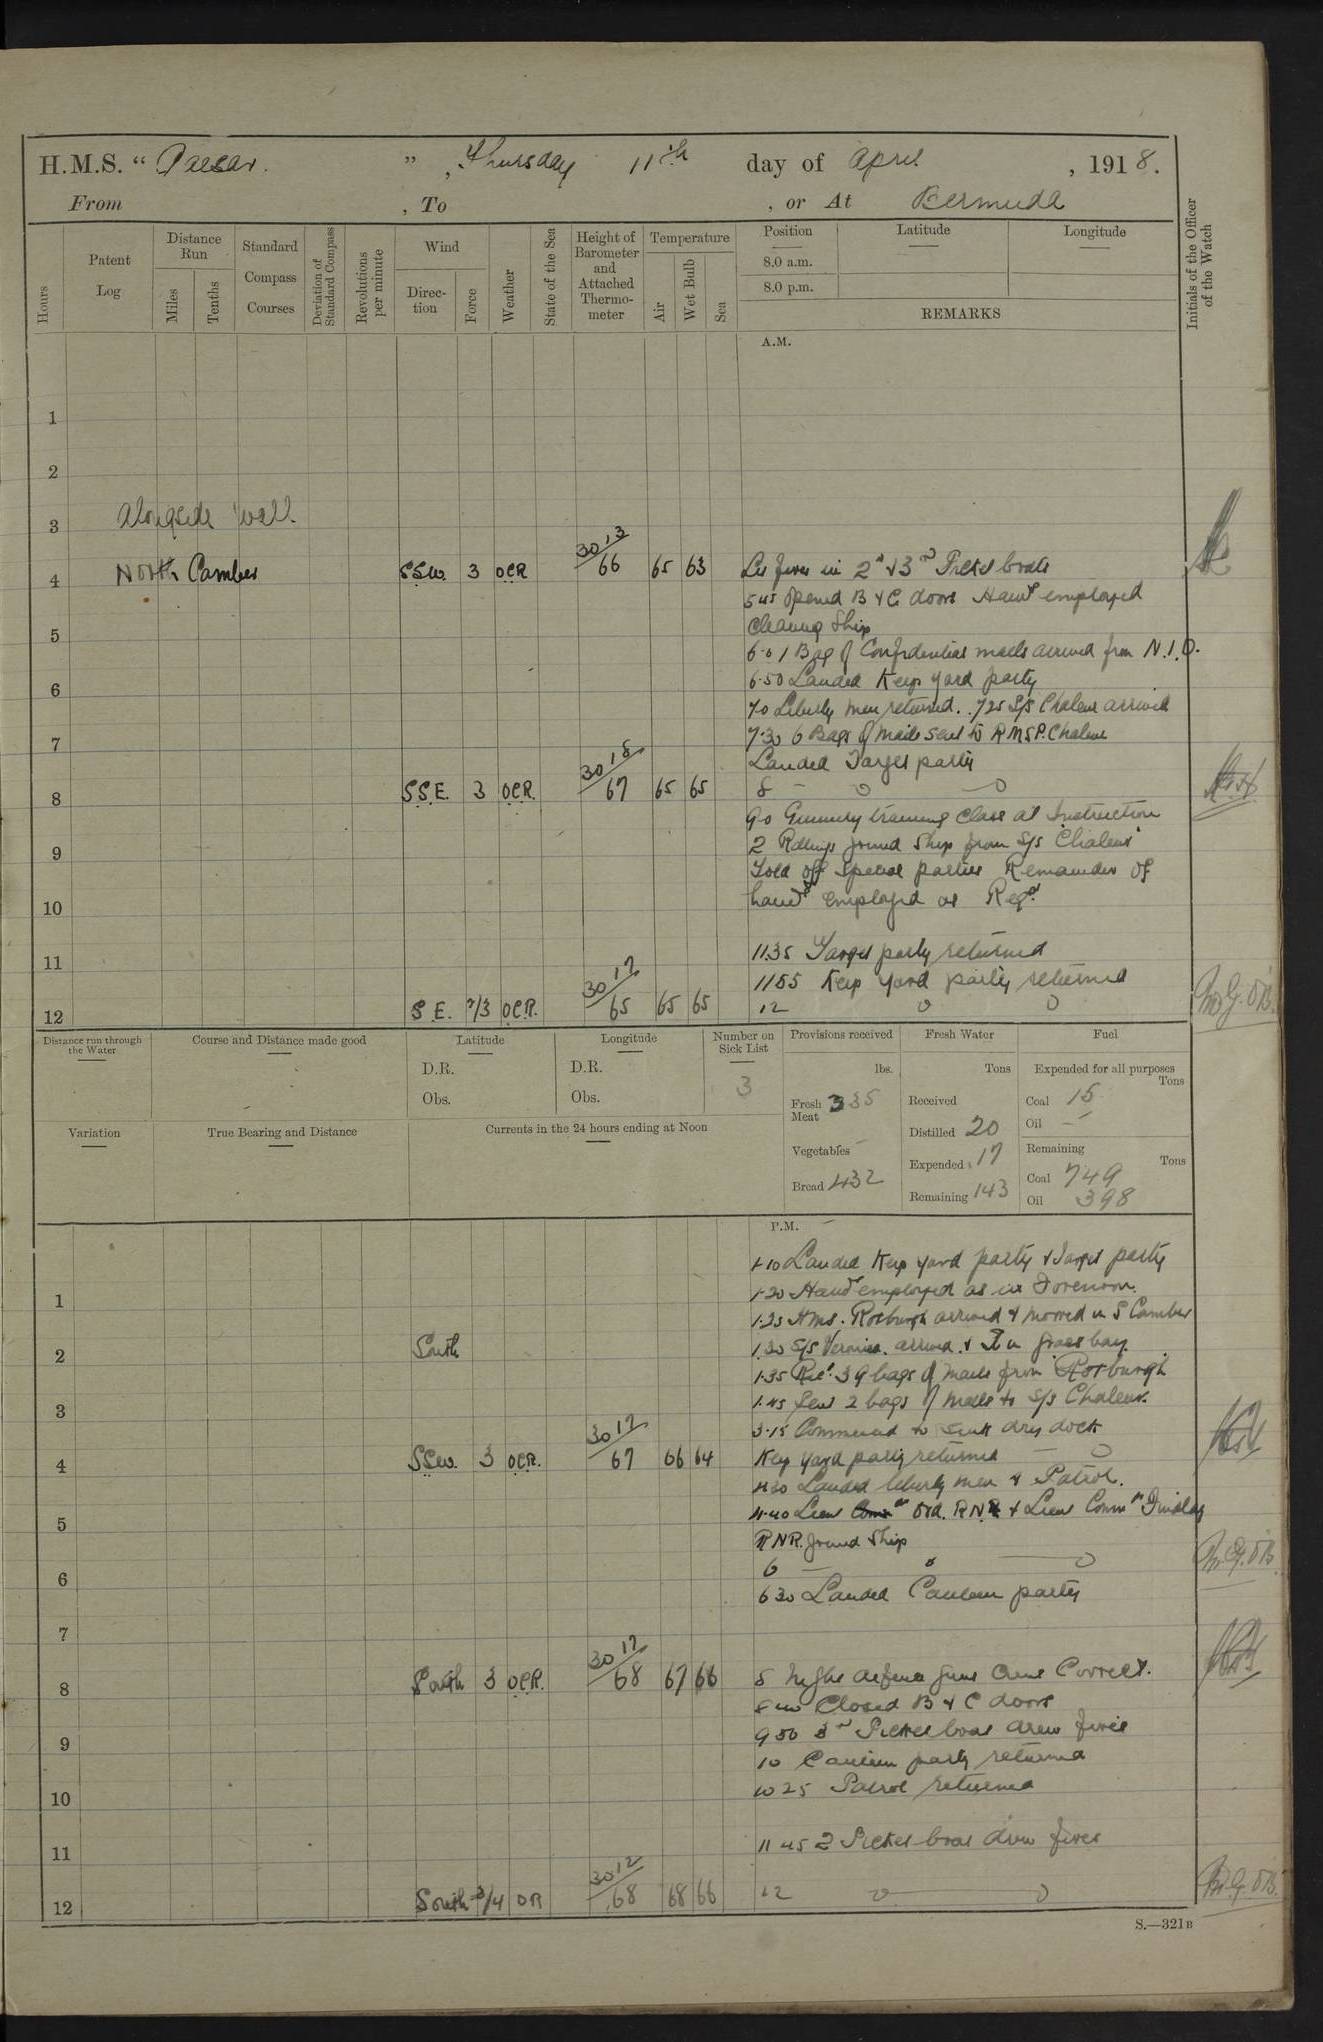 H.M.S. " Caesar. " , Thursday 11th day of April , 1918.
From , To , or At Bermuda
Hours
Patent Log
Distance Run
Miles
Tenths
Standard Compass Courses
Deviation of Standard Compass
Revolutions per minute
Wind
Direction
Force
Weather
State of the Sea
Height of Barometer and Attached Thermometer
Temperature
Air
Wet Bulb
Sea
Position
8.0 a.m.
8.0 p.m.
Latitude
Longitude
REMARKS
Initials of the Officer of the Watch
A.M.
1
2
3 Alongside Wall.
4 North Camber SSW. 3 OCR 30 13/66 65 63 Lit fires in 2nd & 3rd Picket boats
5 45 Opened B & C doors Hands employed
Cleaning Ship
5
6.0 1 Bag of Confidential mails arrived from N.I.O.
6.50 Landed Keep Yard party
6
7.0 Liberty men returned. 7 25 S/S Chaleur arrived
7.30 6 Bags of mails sent to RMSP. Chaleur
7
Landed Target party
8 SSE. 3 OCR. 30 18/67 65 65 8
9.0 Gunnery training Class at Instruction
2 Ratings joined Ship from S/S "Chaleur"
9
Told off Special parties Remainder of
hands employed as Reqd.
10
11.35 Target party returned
11
1155 Keep Yard party returned
12 S E. 2/3 OCR. 30 17/65 65 65 12
Distance run through the Water
Course and Distance made good
Latitude
D.R.
Obs.
Longitude
D.R.
Obs.
Number on Sick List
3
Provisions received
lbs.
Fresh Meat 335
Vegetables –
Bread 432
Fresh Water
Tons
Received
Distilled 20
Expended 17
Remaining 143
Fuel
Expended for all purposes
Tons
Coal 15
Oil –
Remaining
Tons
Coal 749
Oil 398
Variation
True Bearing and Distance
Currents in the 24 hours ending at Noon
P.M.
1.10 Landed Keep yard party & Target party
1.20 Hands employed as in Forenoon.
1
1.25 HMS. Roxburgh arrived & moored in S Camber
2 South 1.30 S/S Veronica arrived & in Grass bay.
1.35 Recd. 39 bags of mails from Roxburgh
1.45 Sent 2 bags of mails to S/S Chaleur.
3
3.15 Commenced to sink dry dock
4 SSW. 3 OCR. 30 17/67 66 64 Keep yard party returned
4 30 Landed liberty men & Patrol.
4.40 Lieut RNR & Lieut Commr Findlay
5
RNR. joined Ship
6
6
6 30 Landed Canteen party
7
8 South 3 OCR. 30 17/68 67 66 8 Night defence guns crews Correct.
Closed B & C doors
9 9 50 3rd Picket boat drew fires
10 Canteen party returned
10 10 25 Patrol returned
11 11 45 2 Picket boat drew fires
12 South 3/4 OR 30 12/68 68 66 12
S.—321B